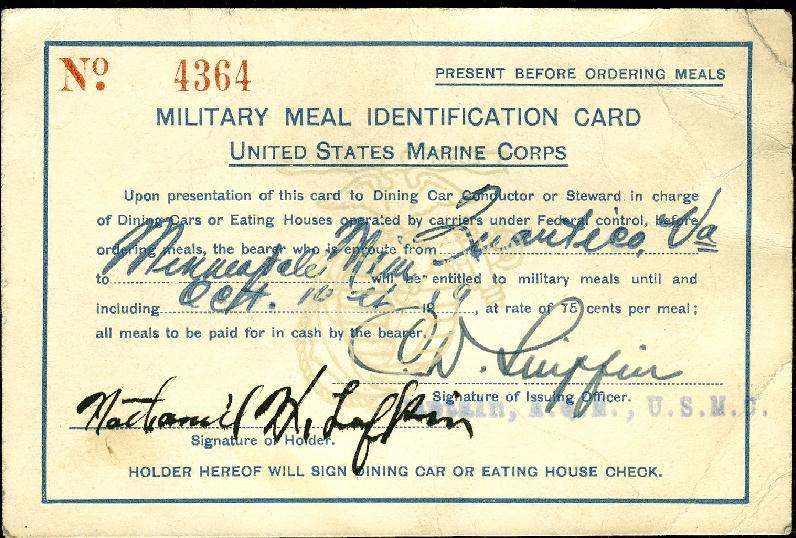 No. 4364
PRESENT BEFORE ORDERING MEALS
MILITARY MEAL IDENTIFICATION CARD
UNITED STATES MARINE CORPS
Upon presentation of this card to Dining Car Conductor or Steward in charge
of Dining Cars or Eating Houses operated by carriers under Federal control, before
ordering meals, the bearer who is enroute from Quantico, Va
to Minneapolis Minn will be entitled to military meals until and
including Oct. 10th 19, at rate of 75 cents per meal;
all meals to be paid for in cash by the bearer.
Signature of Issuing Officer.
Captain, A.Q.M., U.S.M.C.
Nathaniel H. Lufkin
Signature of Holder.
HOLDER HEREOF WILL SIGN DINING CAR OR EATING HOUSE CHECK.